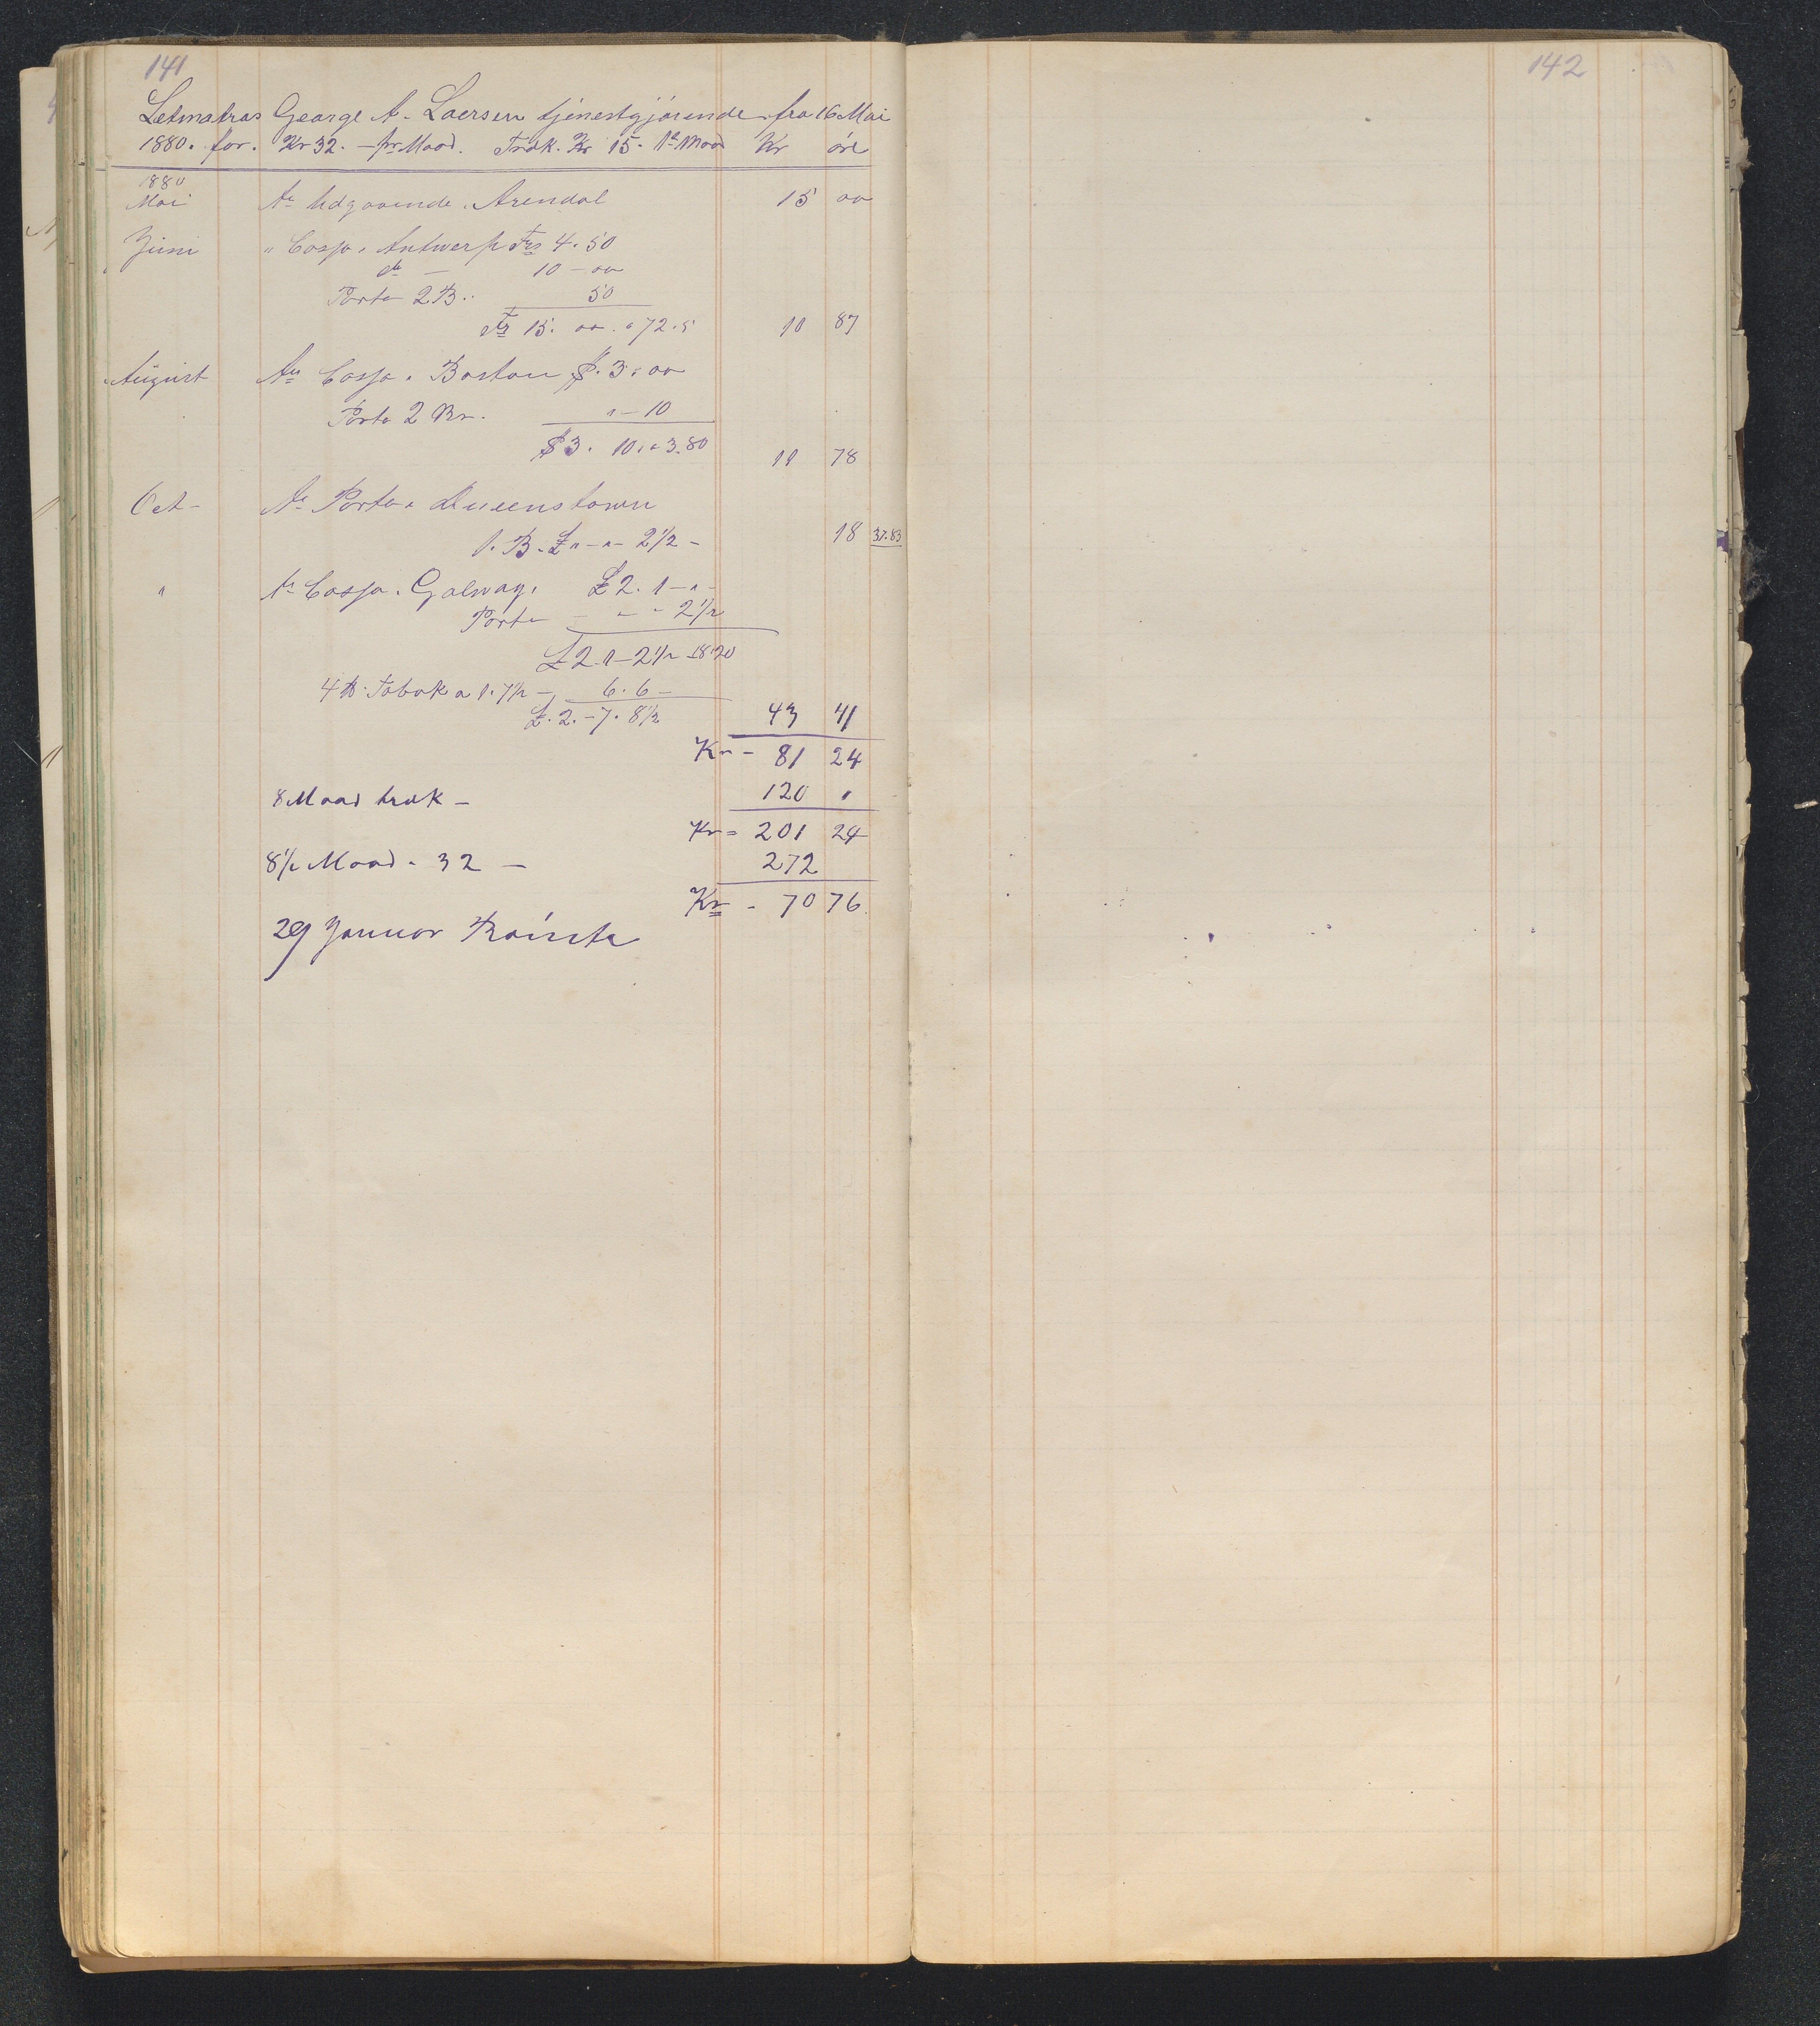 141
Letmatros George A. Laersen tjenestgjørende fra 16 Mai
1880. for. Kr 32. - pr Maad. Træk. Kr 15. Pr Maad Kr öre
1880
Mai An Udgaaende. Arendal 15 00
Juni " Cassa. Antwerp Frs 4. 50
do — 10 - 00
Porto 2 B. 50
Fr 15. 00. a 72.5 10 87
August An Cassa. Boston $. 3. 00
Porto 2 Br. " - 10
$ 3. 10. a 3.80 11 78
Oct - An Porto. Queenstown
1. B. £ " - " - 2 1/2 - 18 37.83
" An Cassa. Galway. £ 2. 1 - " -
Porto - " - " 2 1/2
£ 2 - 1 - 2 1/2 18.20
4 ℔. Tobak a 1. 7 1/2 - 6. 6 -
£. 2. - 7. 8 1/2 43 41
Kr - 81 24
8 Maad træk - 120 "
Kr = 201 24
8 1/2 Maad. 32 - 272
Kr - 70 76
29 Januar
142